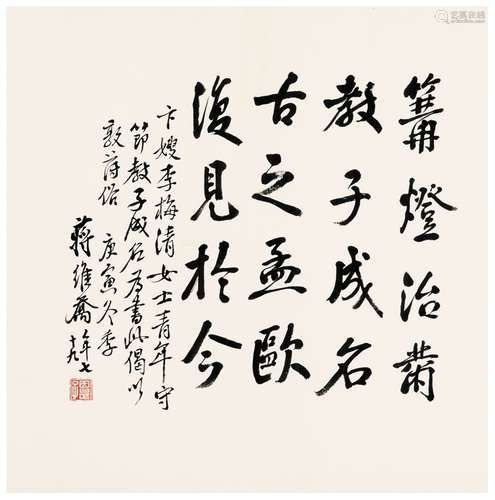 篝燈治黹
教子成名
古之孟歐
復見於今
卞嫂李梅清女士青年守
節教子成名為書此偈以
敦薄俗 庚寅冬季
蔣維喬
年七
艺狐在线